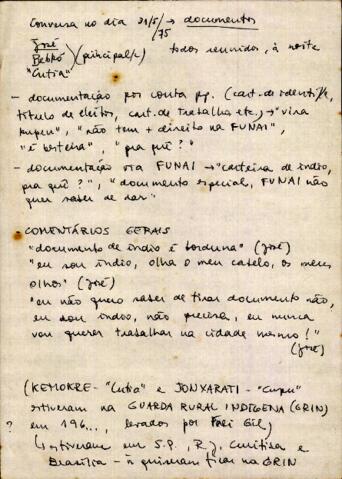 Conversa no dia 21/5/75 → documentos
José
Bebkó } (principal/e)
"Cutia"
todos reunidos, à noite
- documentação por conta pp. (cart. de identid/e,
título de eleitor, cart. de trabalho etc.) → "vira
kupen", "não tem + direito na FUNAI",
"é besteira", "pra quê?"
- documentação via FUNAI → "carteira de índio,
pra quê?", "documento especial, FUNAI não
quer saber de dar"
COMENTÁRIOS GERAIS
"documento de índio é borduna" (José)
"eu sou índio, olha o meu cabelo, os meus
olhos" (José)
"eu não quero saber de tirar documento não,
eu sou índio, não precisa, eu nunca
vou querer trabalhar na cidade mesmo!"
(José)
(KEMOKRE - "Cutia" e JONXARATI - "Cupu"
estiveram na GUARDA RURAL INDÍGENA (GRIN)
? em 196..., levados por Frei Gil)
(estiveram em S.P., R.J., Curitiba e
Brasília - ñ quiseram ficar na GRIN